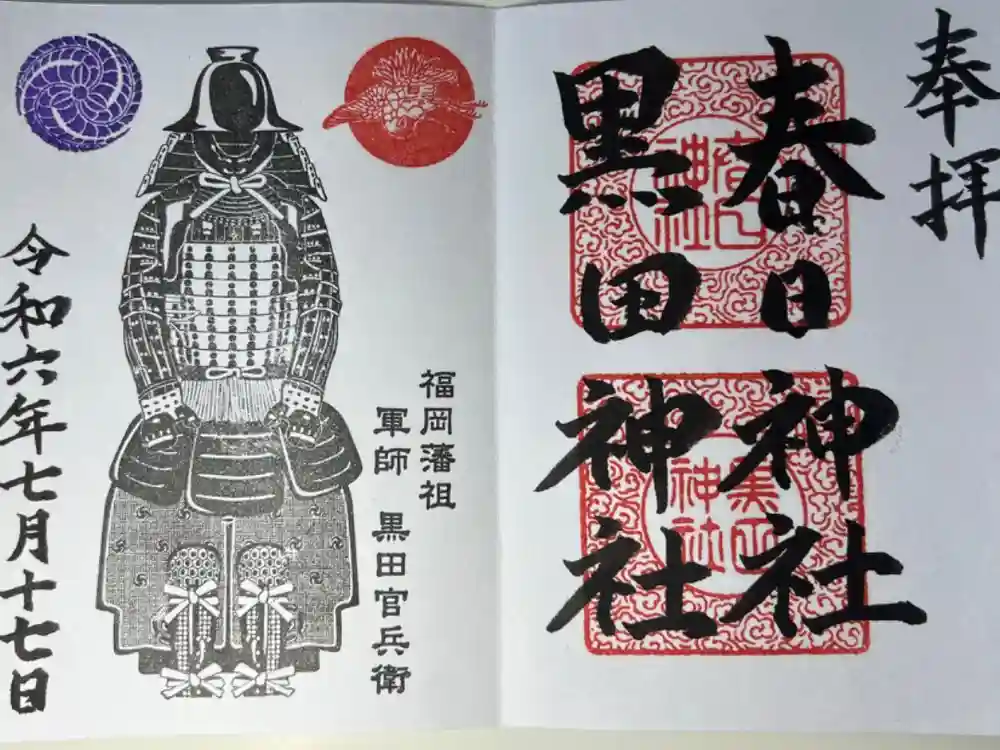 奉拝
春日神社
黒田神社
春日神社
黒田神社
福岡藩祖
軍師 黒田官兵衛
令和六年七月十七日